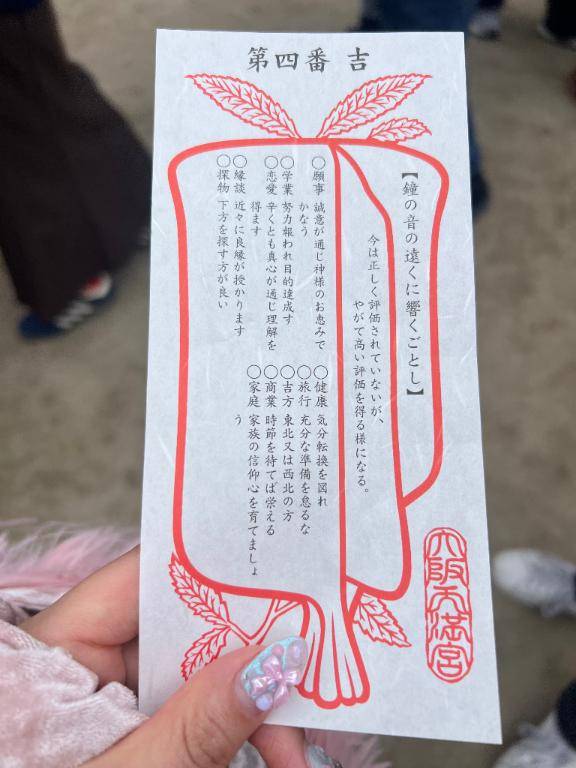 第四番 吉
【鐘の音の遠くに響くごとし】
今は正しく評価されていないが、
やがて高い評価を得る様になる。
○願事 誠意が通じ神様のお恵みで
かなう
○学業 努力報われ目的達成す
○恋愛 辛くとも真心が通じ理解を
得ます
○縁談 近々に良縁が授かります
○探物 下方を探す方が良い
○健康 気分転換を図れ
○旅行 充分な準備を怠るな
○吉方 東北又は西北の方
○商業 時節を待てば栄える
○家庭 家族の信仰心を育てましょ
う
大阪天満宮